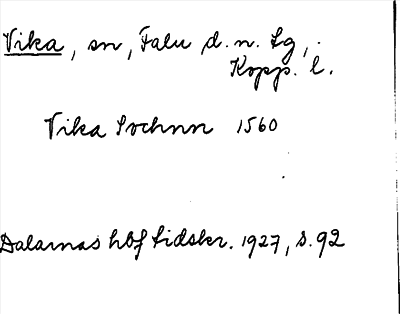 Vika, sn, Falu d. n. Lg,
Kopp. l.
Vika Sochnn 1560
Dalarnas hbf tidskr. 1927, s. 92